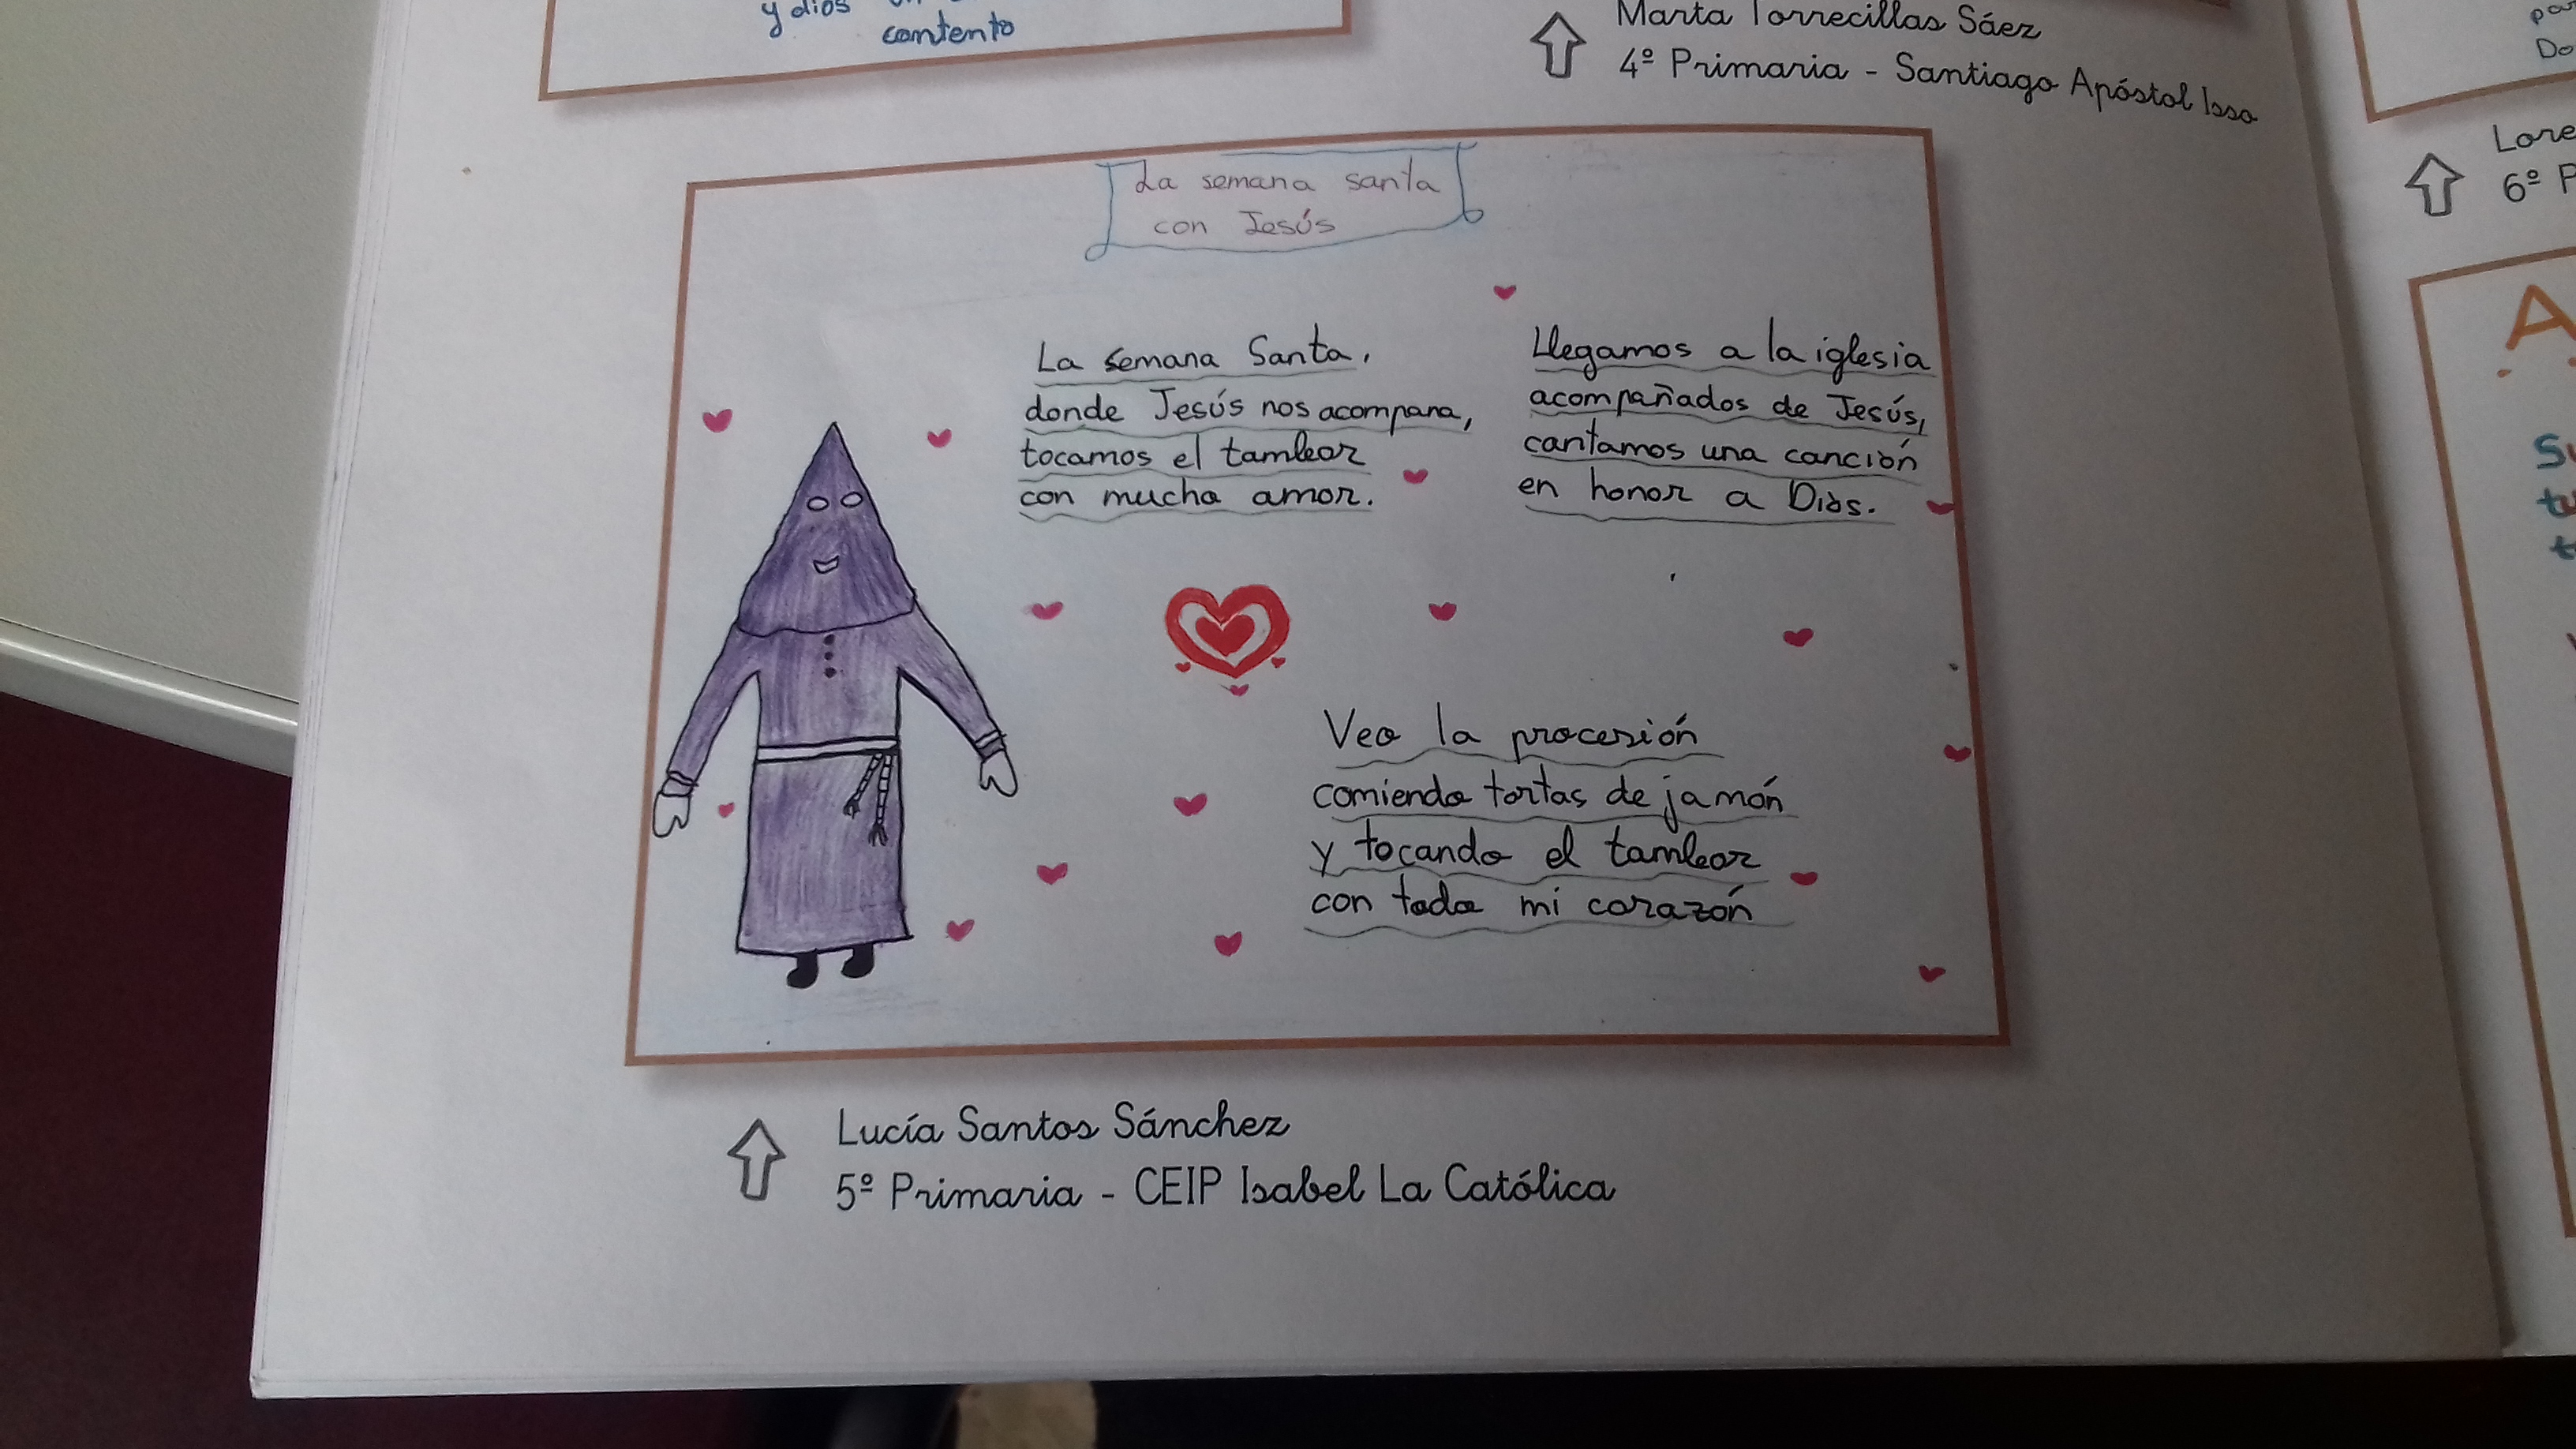 y dios
contento
Marta Torrecillas Sáez
4º Primaria - Santiago Apóstol Isso
La semana santa
con Jesús
La semana Santa,
donde Jesús nos acompana,
tocamos el tambor
con mucho amor.
Llegamos a la iglesia
acompañados de Jesús,
cantamos una canción
en honor a Dios.
Veo la procesión
comiendo tortas de jamón
y tocando el tambor
con todo mi corazón
Lucía Santos Sánchez
5º Primaria - CEIP Isabel La Católica
6º